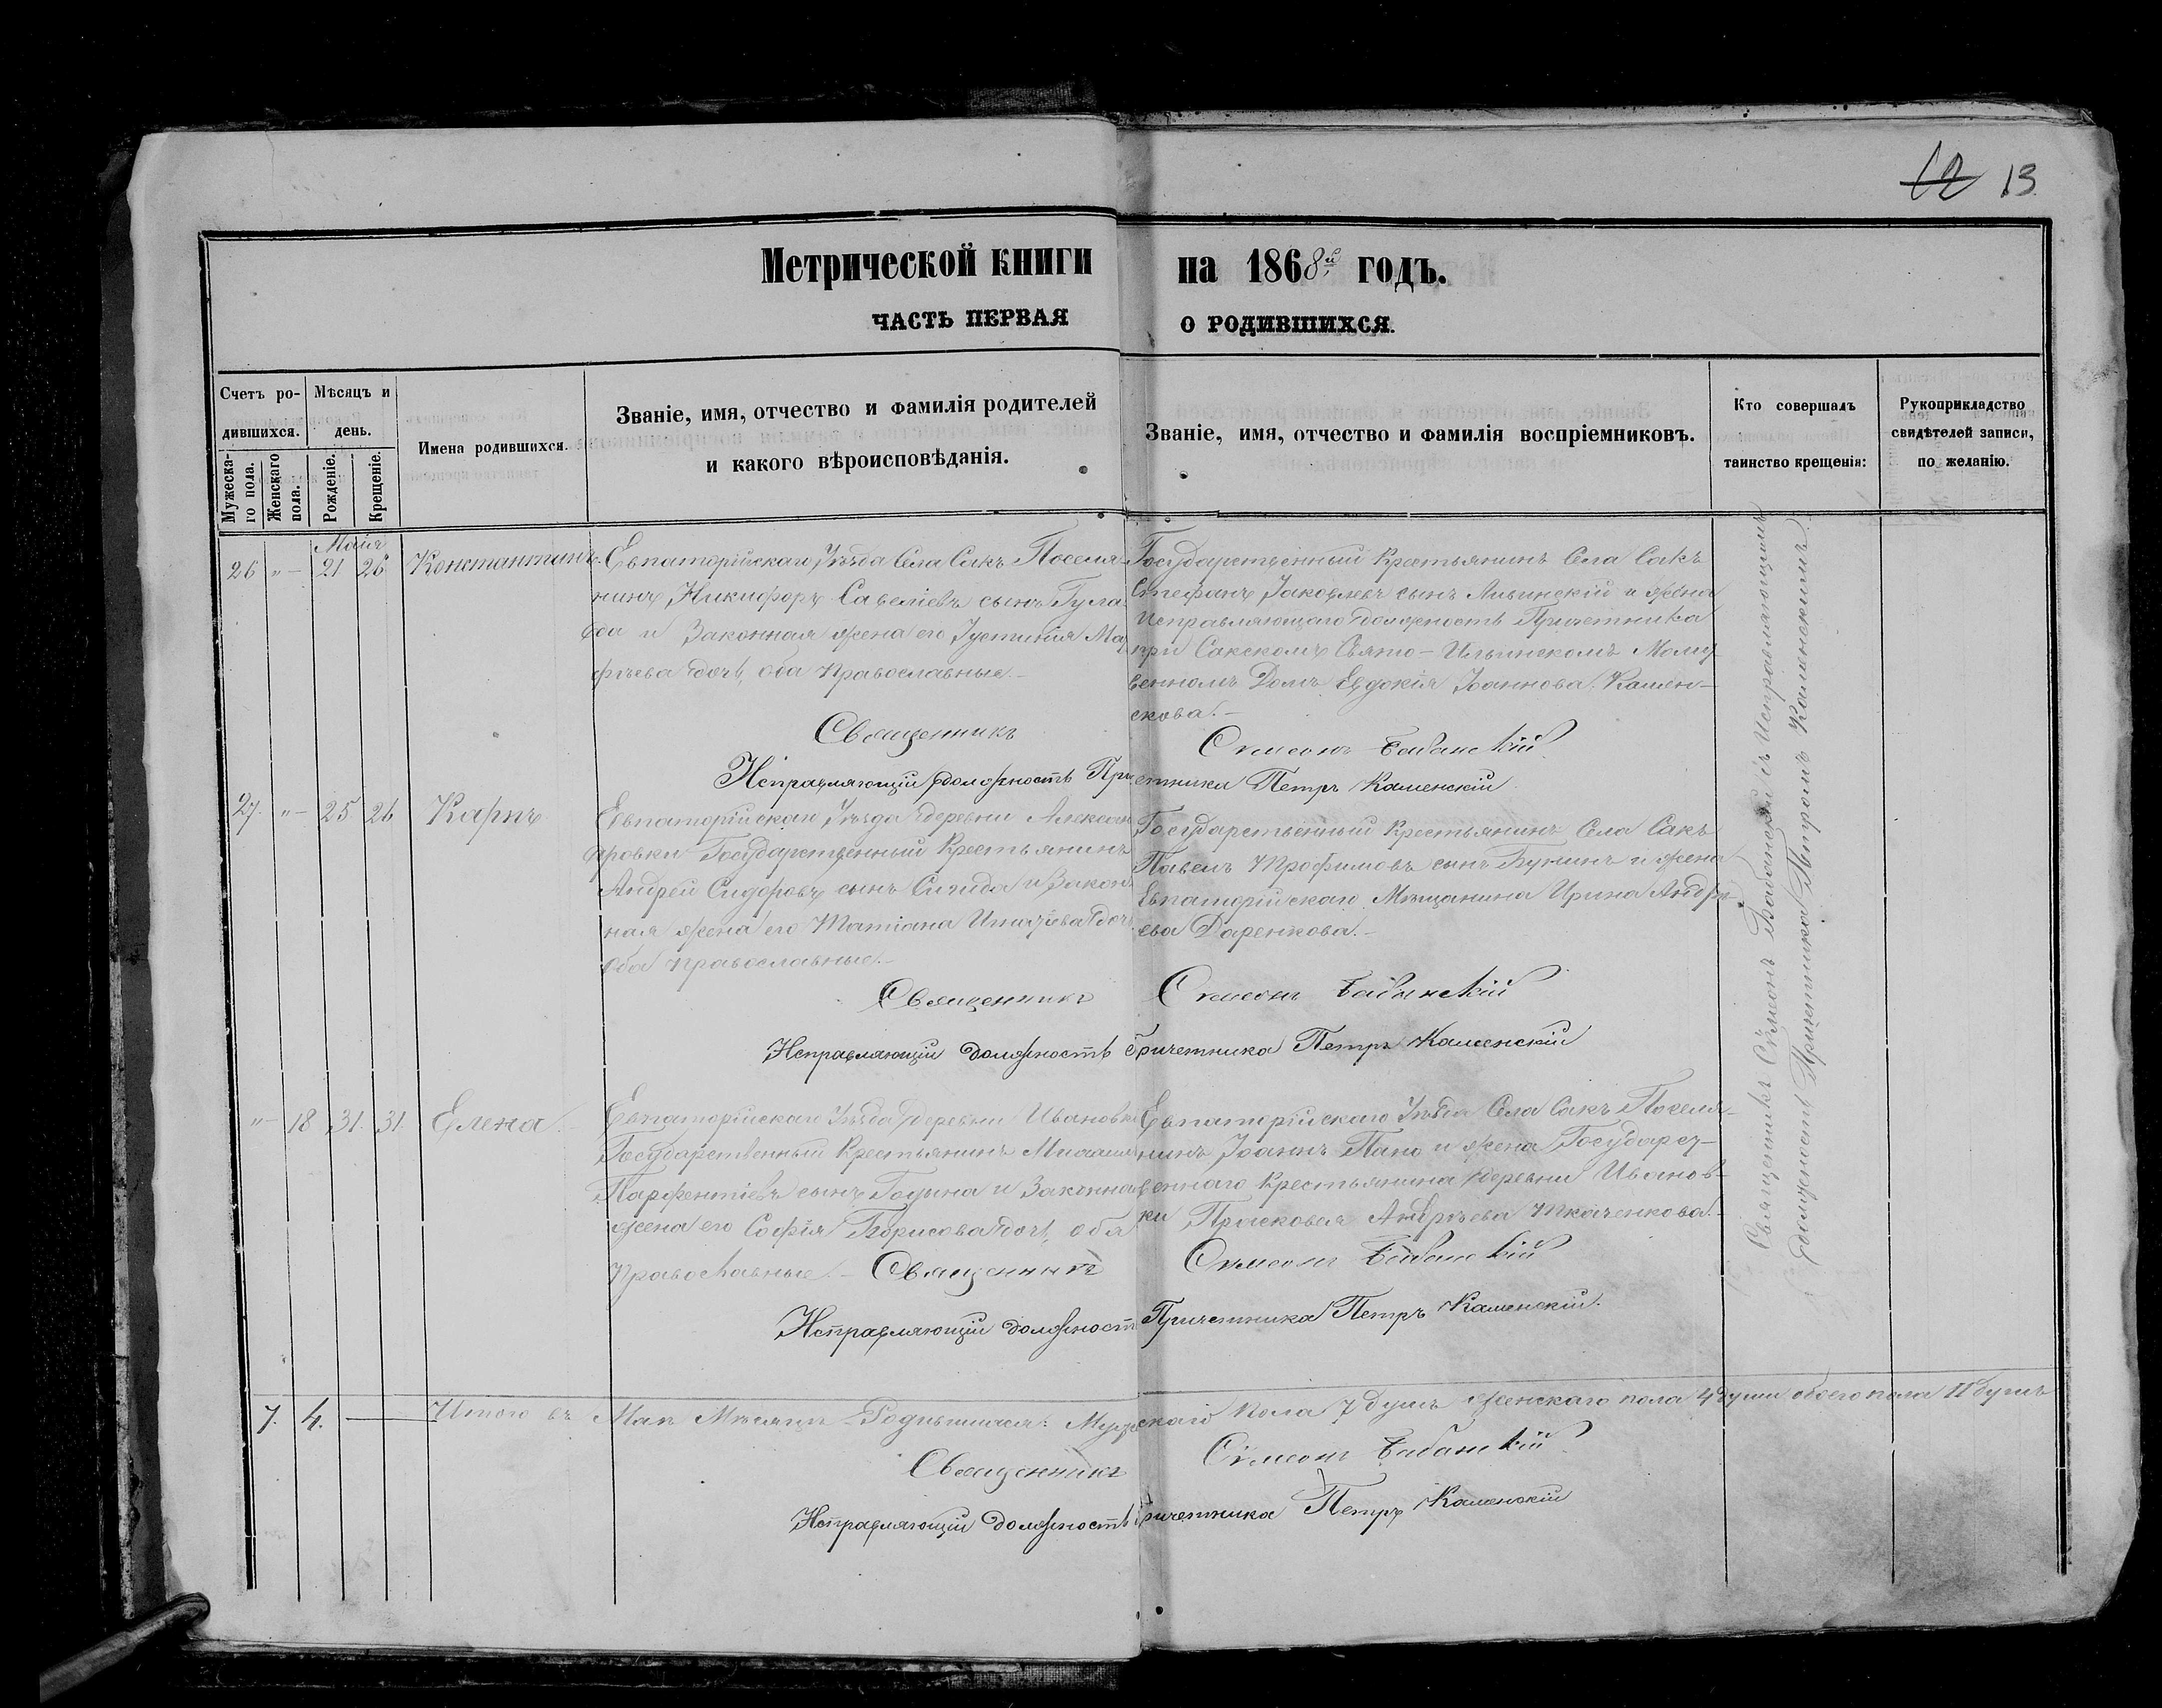 12 13
Метрической книги на 1868й годъ.
ЧАСТЬ ПЕРВАЯ О РОДИВШИХСЯ.
Счетъ ро-
дившихся.
Мужеска-
го пола.
Женскаго
пола.
Мѣсяцъ и
день.
Рожденіе.
Крещеніе.
Имена родившихся.
Званіе, имя, отчество и фамилія родителей
и какого вѣроисповѣданія.
Званіе, имя, отчество и фамилія воспріемниковъ.
Кто совершалъ
таинство крещенія:
Рукоприкладство
свидѣтелей записи,
по желанію.
Майя
26 „ — 21 26 Константинъ
Евпаторійскаго Уѣзда Села Сакъ Поселя-
нинъ Никифоръ Савеліевъ сынъ
и Законная жена его Іустинія Мат-
фѣева дочь, оба Православные.—
Государственный Крестьянинъ Села Сакъ
Стефанъ Іаковлевъ сынъ и жена
Исправляющаго должность Причетника
при Сакскомъ Свято-Ильинскомъ Молит-
венномъ Домѣ Евдокія Іоаннова Камен-
скова.—
Священникъ Симеонъ Бабанскій
Исправляющій должность Причетника Петръ Каменскій
27. „ — 25. 26 Карпъ
Евпаторійскаго Уѣзда деревни Алексан-
дровки Государственный Крестьянинъ
Андрей Сидоровъ сынъ Сигида и Закон-
ная жена его Татіана Игнатіева дочь
оба Православные.—
Государственный Крестьянинъ Села Сакъ
Павелъ Трофимовъ сынъ и жена
Евпаторійскаго Мѣщанина Ирина Андрѣ-
ева Даренкова.—
Священникъ Симеонъ Бабанскій
Исправляющій должность Причетника Петръ Каменскій
„ — 18 31. 31. Елена.
Евпаторійскаго Уѣзда деревни Ивановки
Государственный Крестьянинъ Михаилъ
Парфентіевъ сынъ и Законная
жена его Софія Борисова дочь, оба
Православные.—
Евпаторійскаго Уѣзда Села Сакъ Поселя-
нинъ Іоаннъ и жена Государст-
веннаго Крестьянина деревни Иванов-
ки Прасковея Андрѣева Ткаченкова.—
Священникъ Симеонъ Бабанскій
Исправляющій должность Причетника Петръ Каменскій.
Священникъ Симеонъ Бабанскій съ Исправляющимъ
должность Причетника Петромъ Каменскимъ.
7. 4. — Итого въ Маѣ Мѣсяцѣ Родившихся: Мужескаго пола 7 душъ женскаго пола 4 души обоего пола 11 душъ
Священникъ Симеонъ Бабанскій
Исправляющій должность Причетника Петръ Каменскій